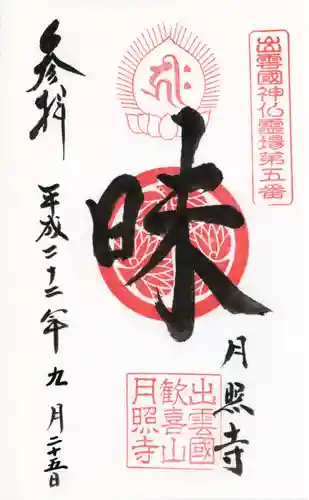 出雲國神仏霊場第五番
昧
月照寺
出雲國
歓喜山
月照寺
奉拝
平成二十二年九月二十五日